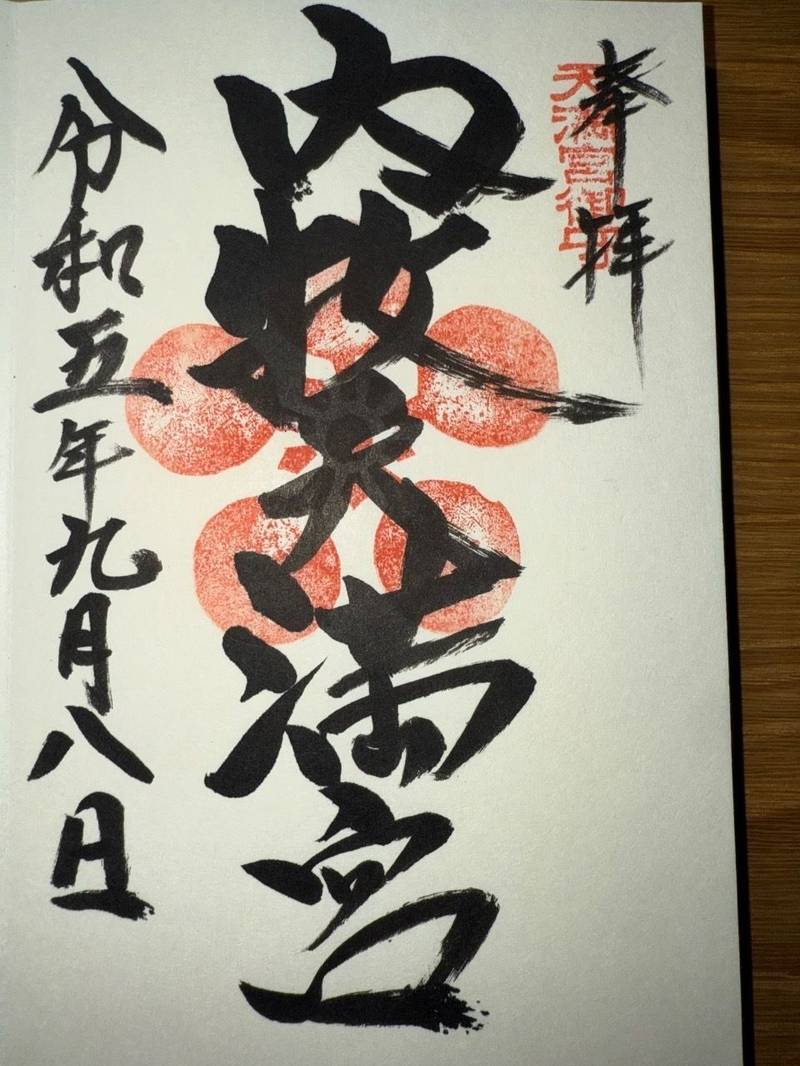 奉拝
天満宮御守
内牧天満宮
令和五年九月八日